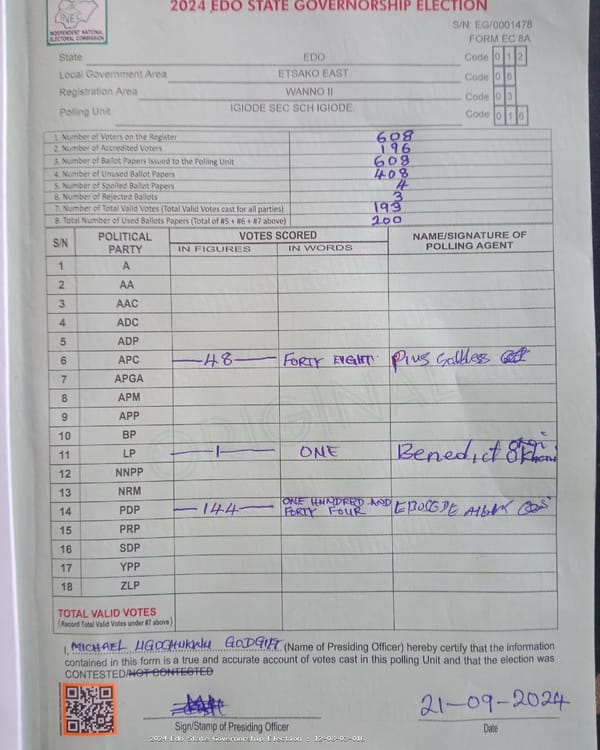 INEC
INDEPENDENT NATIONAL ELECTORAL COMMISSION
2024 EDO STATE GOVERNORSHIP ELECTION
S/N: EG/0001478
FORM EC 8A
State EDO Code 0 1 2
Local Government Area ETSAKO EAST Code 0 8
Registration Area WANNO II Code 0 3
Polling Unit IGIODE SEC SCH IGIODE. Code 0 1 6
1. Number of Voters on the Register 608
2. Number of Accredited Voters 196
3. Number of Ballot Papers Issued to the Polling Unit 608
4. Number of Unused Ballot Papers 408
5. Number of Spoiled Ballot Papers 4
6. Number of Rejected Ballots 3
7. Number of Total Valid Votes (Total Valid Votes cast for all parties) 193
8. Total Number of Used Ballots Papers (Total of #5 + #6 + #7 above) 200
S/N POLITICAL PARTY VOTES SCORED NAME/SIGNATURE OF POLLING AGENT
IN FIGURES IN WORDS
1 A
2 AA
3 AAC
4 ADC
5 ADP
6 APC —48— FORTY EIGHT Pius
7 APGA
8 APM
9 APP
10 BP
11 LP —1— ONE Benedict
12 NNPP
13 NRM
14 PDP —144— ONE HUNDRED AND FORTY FOUR
15 PRP
16 SDP
17 YPP
18 ZLP
ORIGINAL
TOTAL VALID VOTES
(Record Total Valid Votes under #7 above)
I, MICHAEL UGOCHUKWU GODGIFT (Name of Presiding Officer) hereby certify that the information
contained in this form is a true and accurate account of votes cast in this polling Unit and that the election was
CONTESTED/NOT CONTESTED
21-09-2024
Sign/Stamp of Presiding Officer Date
2024 Edo State Governorship Election - 12-08-03-016